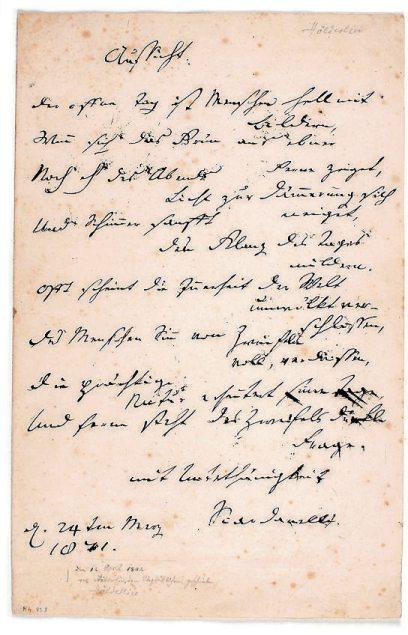 Hölderlin
Aussicht.
Der offne Tag ist Menschen hell mit
Bildern,
Wenn sich das Grün aus ebner
Ferne zeiget,
Noch eh des Abends
Licht zur Dämmerung sich
neiget,
Und Schimmer sanft
den Klang des Tages
mildern.
Oft scheint die Innerheit der Welt
umwölkt ver-
schlossen,
Des Menschen Sinn von Zweifeln
voll, verdrossen,
Die prächtige
Natur erheitert seine Tage
Und ferne steht des Zweifels dunkle
Frage.
mit Unterthänigkeit
Scardanelli.
d. 24 ten Merz